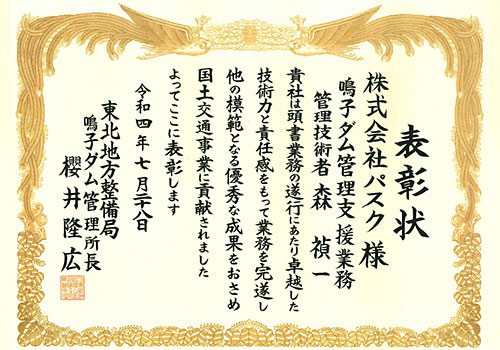 表彰状
株式会社パスク様
鳴子ダム管理支援業務
管理技術者 森 禎一
貴社は頭書業務の遂行にあたり卓越した
技術力と責任感をもって業務を完遂し
他の模範となる優秀な成果をおさめ
国土交通事業に貢献されました
よってここに表彰します
令和四年七月二十八日
東北地方整備局
鳴子ダム管理所長
櫻井隆広